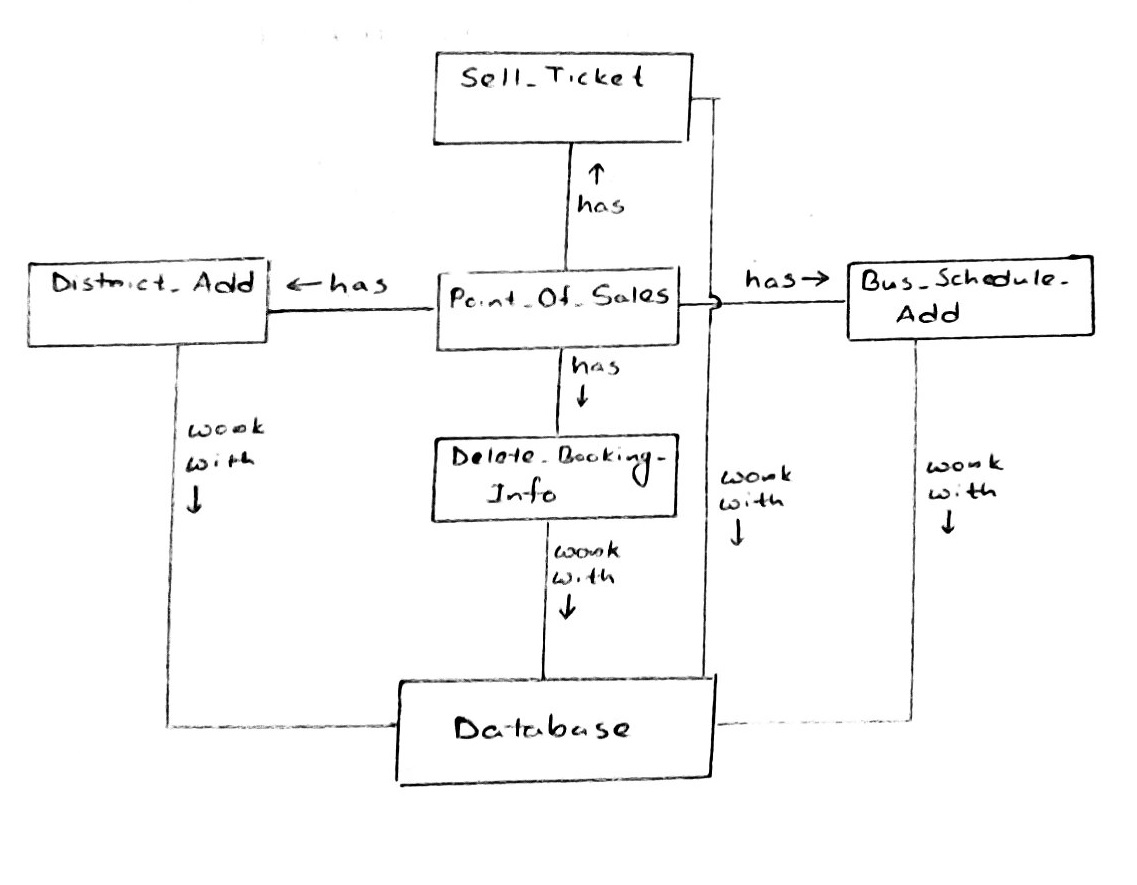 Sell_Ticket
↑
has
District_Add
←has
Point_Of_Sales
has→
Bus_Schedule_
Add
has
↓
Delete_Booking_
Info
work
with
↓
work
with
↓
work
with
↓
work
with
↓
Database